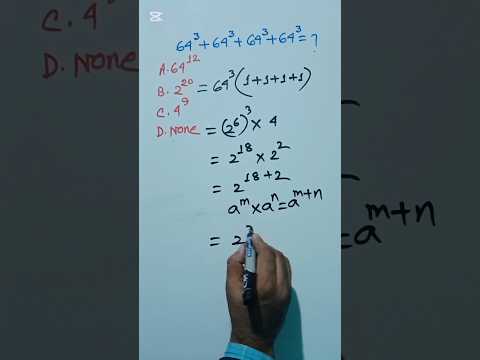 64³ + 64³ + 64³ + 64³ = ?
A. 64¹²
B. 2²⁰
C. 4⁹
D. None
= 64³ (1+1+1+1)
= (2⁶)³ × 4
= 2¹⁸ × 2²
= 2¹⁸⁺²
aᵐ × aⁿ = aᵐ⁺ⁿ
= 2
= aᵐ⁺ⁿ